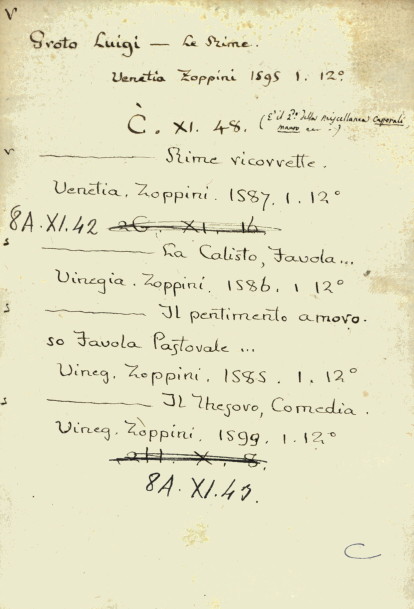 V
Groto Luigi — Le Rime.
Venetia Zoppini 1595 1. 12°
C. XI. 48. (E' il 2° della miscellanea Caporali
V ——— Rime ricorrette.
Venetia. Zoppini. 1587. 1. 12°
8A.XI.42 2G. XI. 16
s ——— La Calisto, Favola...
Vinegia. Zoppini. 1586. 1 12°
s ——— Il pentimento amoro-
so Favola Pastorale ...
Vineg. Zoppini. 1585. 1. 12°
s ——— Il Thesoro, Comedia.
Vineg. Zoppini. 1599. 1. 12°
2H. X. 8.
8A. XI. 43.
C